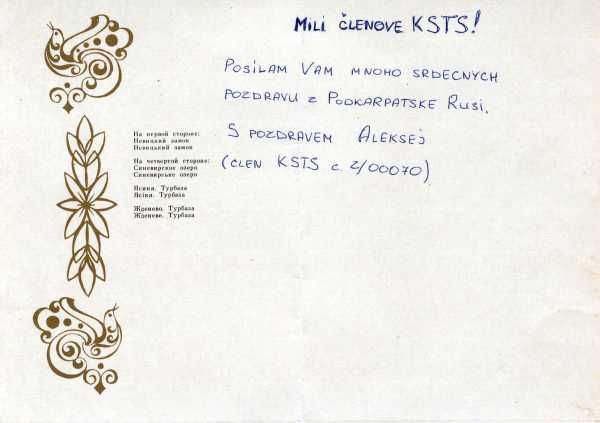 MILI ČLENOVE KSTS!
POSILAM VAM MNOHO SRDECNYCH
POZDRAVU Z PODKARPATSKE RUSI.
S POZDRAVEM ALEKSEJ
(CLEN KSTS C. 2/00070)
На первой стороне:
Невицкий замок
Невицький замок
На четвертой стороне:
Синевирское озеро
Синевирське озеро
Ясиня. Турбаза
Ясіня. Турбаза
Жденево. Турбаза
Жденеве. Турбаза